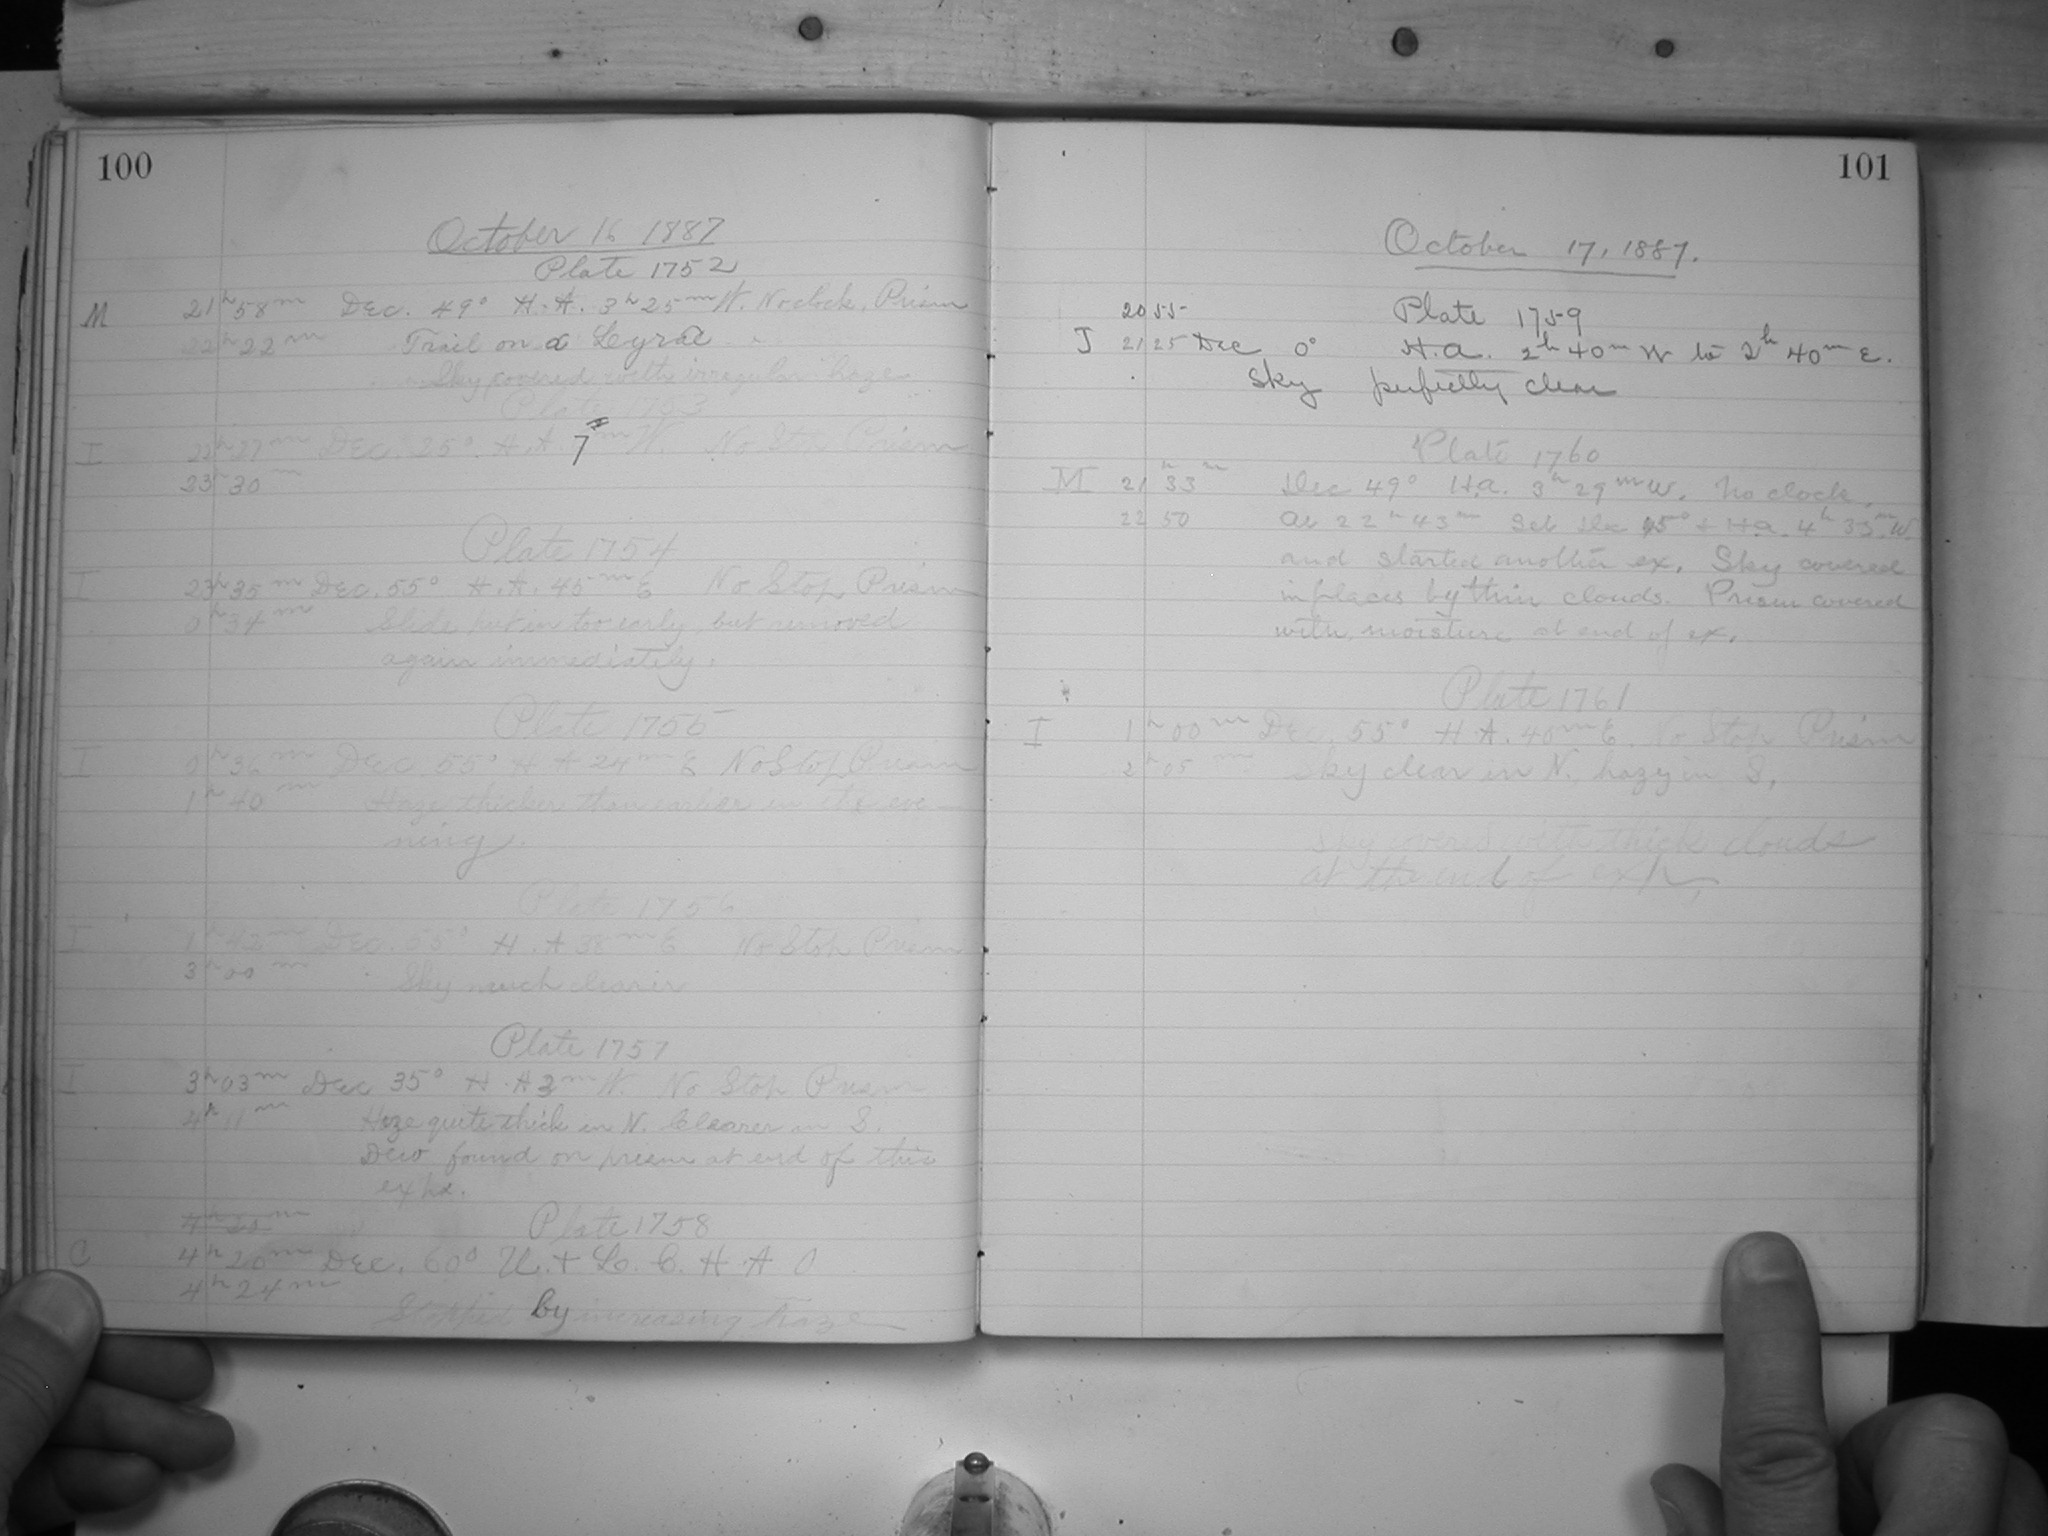 100
October 16 1887
Plate 1752
M 21h 58m Dec. 49° H.A. 3h 25m W. No clock. Prism
22h 22m Trail on α Lyrae
Sky covered with irregular haze
Plate 1753
I 22h 27m Dec. 25° H.A. 7m W. No Stop Prism
23h 30m
Plate 1754
I 23h 35m Dec. 55° H.A. 45m E No Stop Prism
0h 34m Slide put in too early, but removed
again immediately.
Plate 1755
I 0h 36m Dec 55° H A 24m E No Stop Prism
1h 40m Haze thicker than earlier in the eve-
ning.
Plate 1756
I 1h 42m Dec. 55° H.A 38m E No Stop Prism
3h 00m Sky much clearer
Plate 1757
I 3h 03m Dec 35° H.A 3m W. No Stop Prism
4h 11m Haze quite thick in N. Clearer in S.
Dew found on prism at end of this
exps.
4h 20m Plate 1758
C 4h 20m Dec. 60° U. + L. C. H.A 0
4h 24m
Stopped by increasing haze
101
October 17, 1887.
20 55 Plate 1759
J 21 25 Dec 0° H.a. 2h 40m W to 2h 40m E.
Sky perfectly clear
Plate 1760
M 21h 33m Dec 49° H.a. 3h 29m W. No clock.
22 50 At 22h 43m Set Dec 45° + H.a. 4h 33m W.
and started another ex. Sky covered
in places by thin clouds. Prism covered
with moisture at end of ex.
Plate 1761
I 1h 00m Dec. 55° H.A. 40m E. No Stop Prism
2h 05m Sky clear in N. hazy in S.
Sky covered with thick clouds
at the end of exp.